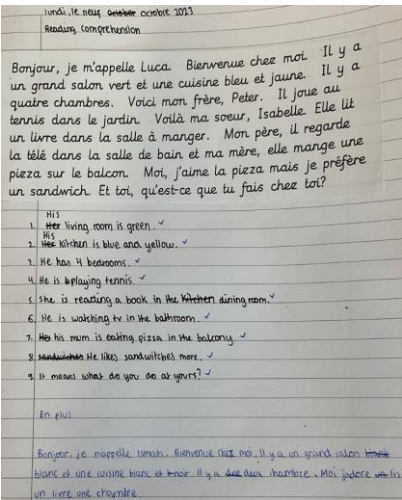 lundi, le neuf october octobre 2023
Reading comprehension
Bonjour, je m'appelle Luca. Bienvenue chez moi. Il y a
un grand salon vert et une cuisine bleu et jaune. Il y a
quatre chambres. Voici mon frère, Peter. Il joue au
tennis dans le jardin. Voilà ma soeur, Isabelle. Elle lit
un livre dans la salle à manger. Mon père, il regarde
la télé dans la salle de bain et ma mère, elle mange une
pizza sur le balcon. Moi, j'aime la pizza mais je préfère
un sandwich. Et toi, qu'est-ce que tu fais chez toi?
His
1. Her living room is green.
His
2. Her Kitchen is blue and yellow.
3. He has 4 bedrooms.
4. He is playing tennis
5. She is reading a book in the Kitchen dining room.
6. He is watching tv in the bathroom.
7. his mum is eating pizza in the balcony.
8. sandwiches He likes sandwitches more.
9. It means what do you do at yours?
En plus
Bonjour, je m'appelle Ismah. Bienvenue chez moi. Il y a un grand salon
blanc et une cuisine blanc et noir. Il y a deux chambre. Moi j'adore lis
un livre une